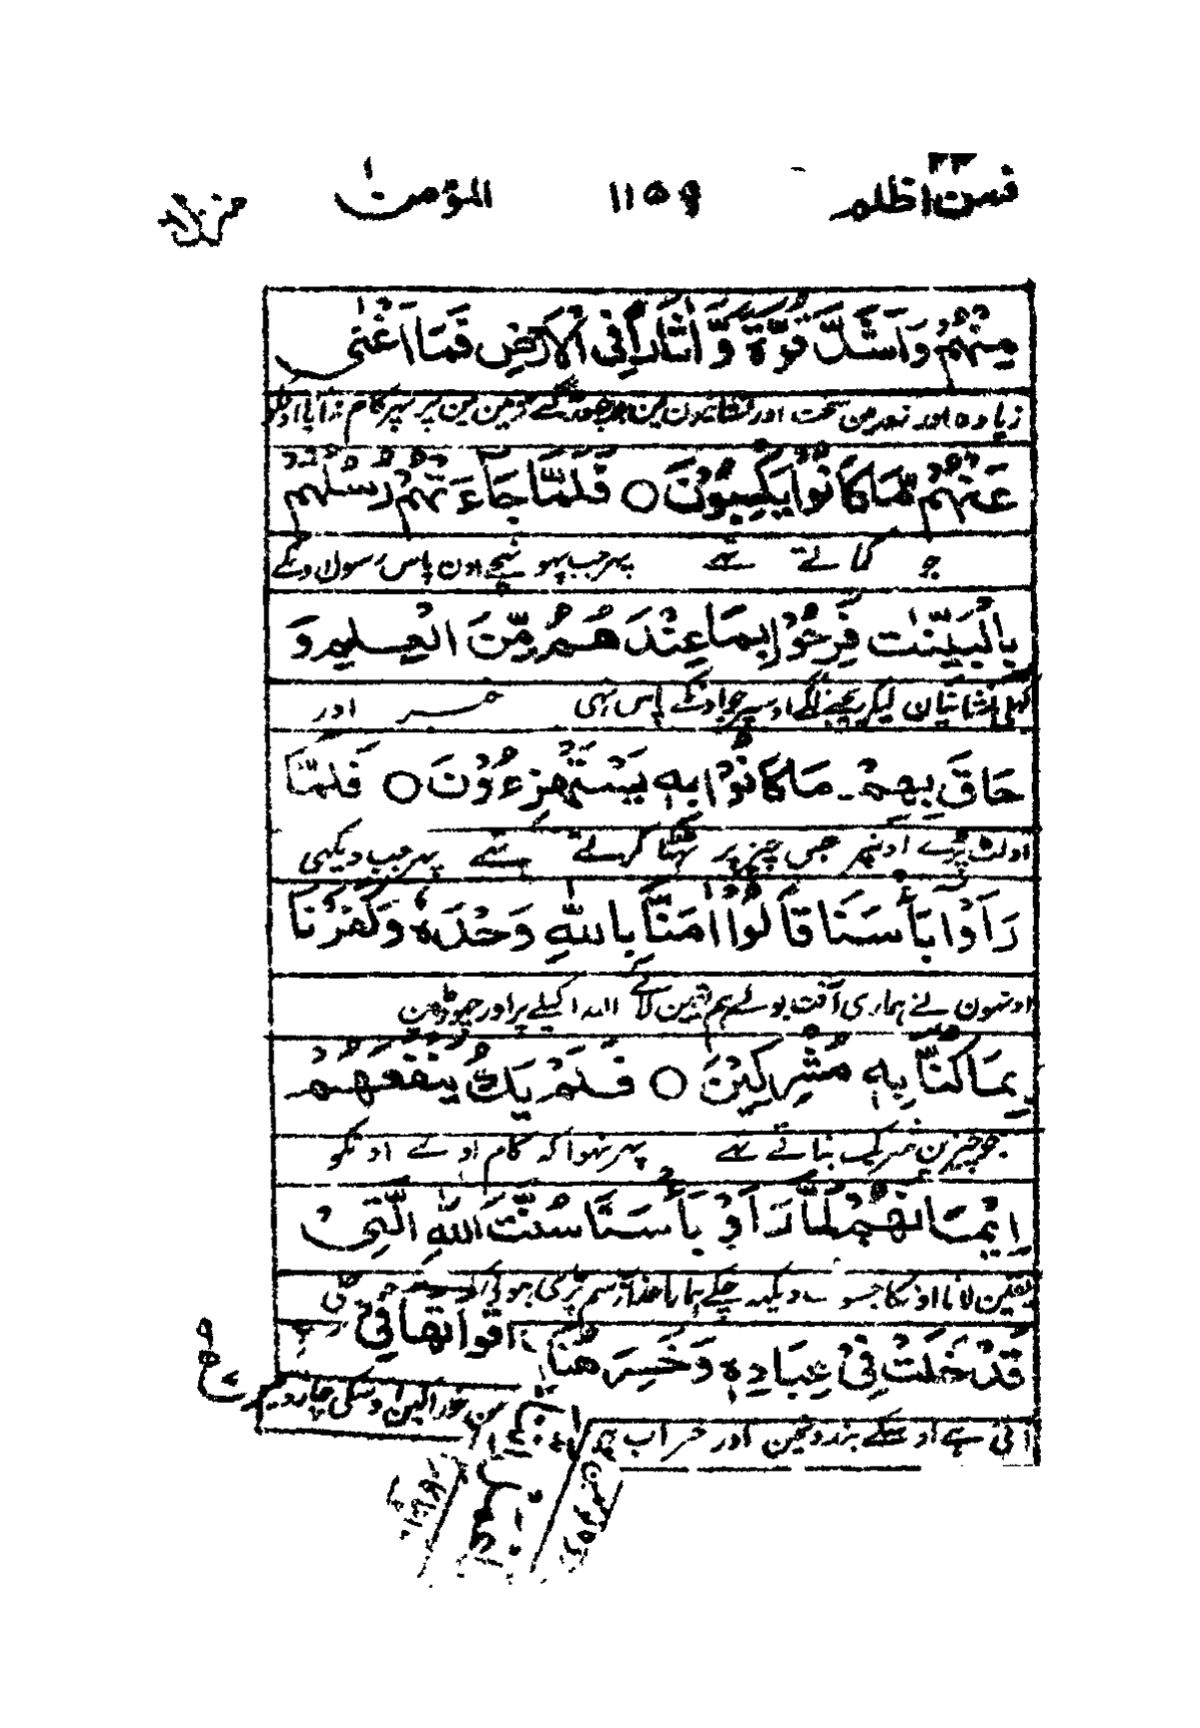 فمن اظلم ٢٤ ١١٥٩ المؤمن
مِنْهُمْ وَاَشَدَّ قُوَّةً وَّاٰثَارًا فِى الْاَرْضِ فَمَا اَغْنٰى
زیادہ اور زور مین سخت اور نشانیون مین جو چھوڑ گئے زمین مین پر پہر کام نہ آیا
عَنْهُمْ مَّا كَانُوْا يَكْسِبُوْنَ ○ فَلَمَّا جَاءَتْهُمْ رُسُلُهُمْ
جو کماتے تہے پہر جب پہونچے اون پاس رسول اونکے
بِالْبَيِّنٰتِ فَرِحُوْا بِمَا عِنْدَهُمْ مِّنَ الْعِلْمِ وَ
کہلی نشانیان لیکر ریجہنے لگے اوسپر جو اونکے پاس تہی خبر اور
حَاقَ بِهِمْ مَا كَانُوْا بِهٖ يَسْتَهْزِءُوْنَ ○ فَلَمَّا
اولٹ پڑے اونپر جس چیز پر ٹہٹا کرتے تہے پہر جب دیکہی
رَاَوْا بَأْسَنَا قَالُوْا اٰمَنَّا بِاللّٰهِ وَحْدَهٗ وَكَفَرْنَا
اونہون نے ہماری آفت بولے ہم یقین لائے اللہ اکیلے پر اور چہوڑین
بِمَا كُنَّا بِهٖ مُشْرِكِيْنَ ○ فَلَمْ يَكُ يَنْفَعُهُمْ
جو چیزین شریک بتاتے تہے پہر نہوا کہ کام اوے اونکو
اِيْمَانُهُمْ لَمَّا رَاَوْا بَأْسَنَا سُنَّتَ اللّٰهِ الَّتِىْ
یقین لانا اونکا جسوقت دیکہہ چکے ہمارا عذاب رسم پڑی ہوئی اللہ کی جو
قَدْ خَلَتْ فِىْ عِبَادِهٖ وَخَسِرَ هُنَا
ائی ہے اوسکے بندونمین اور خراب ہو
اقواتها فى